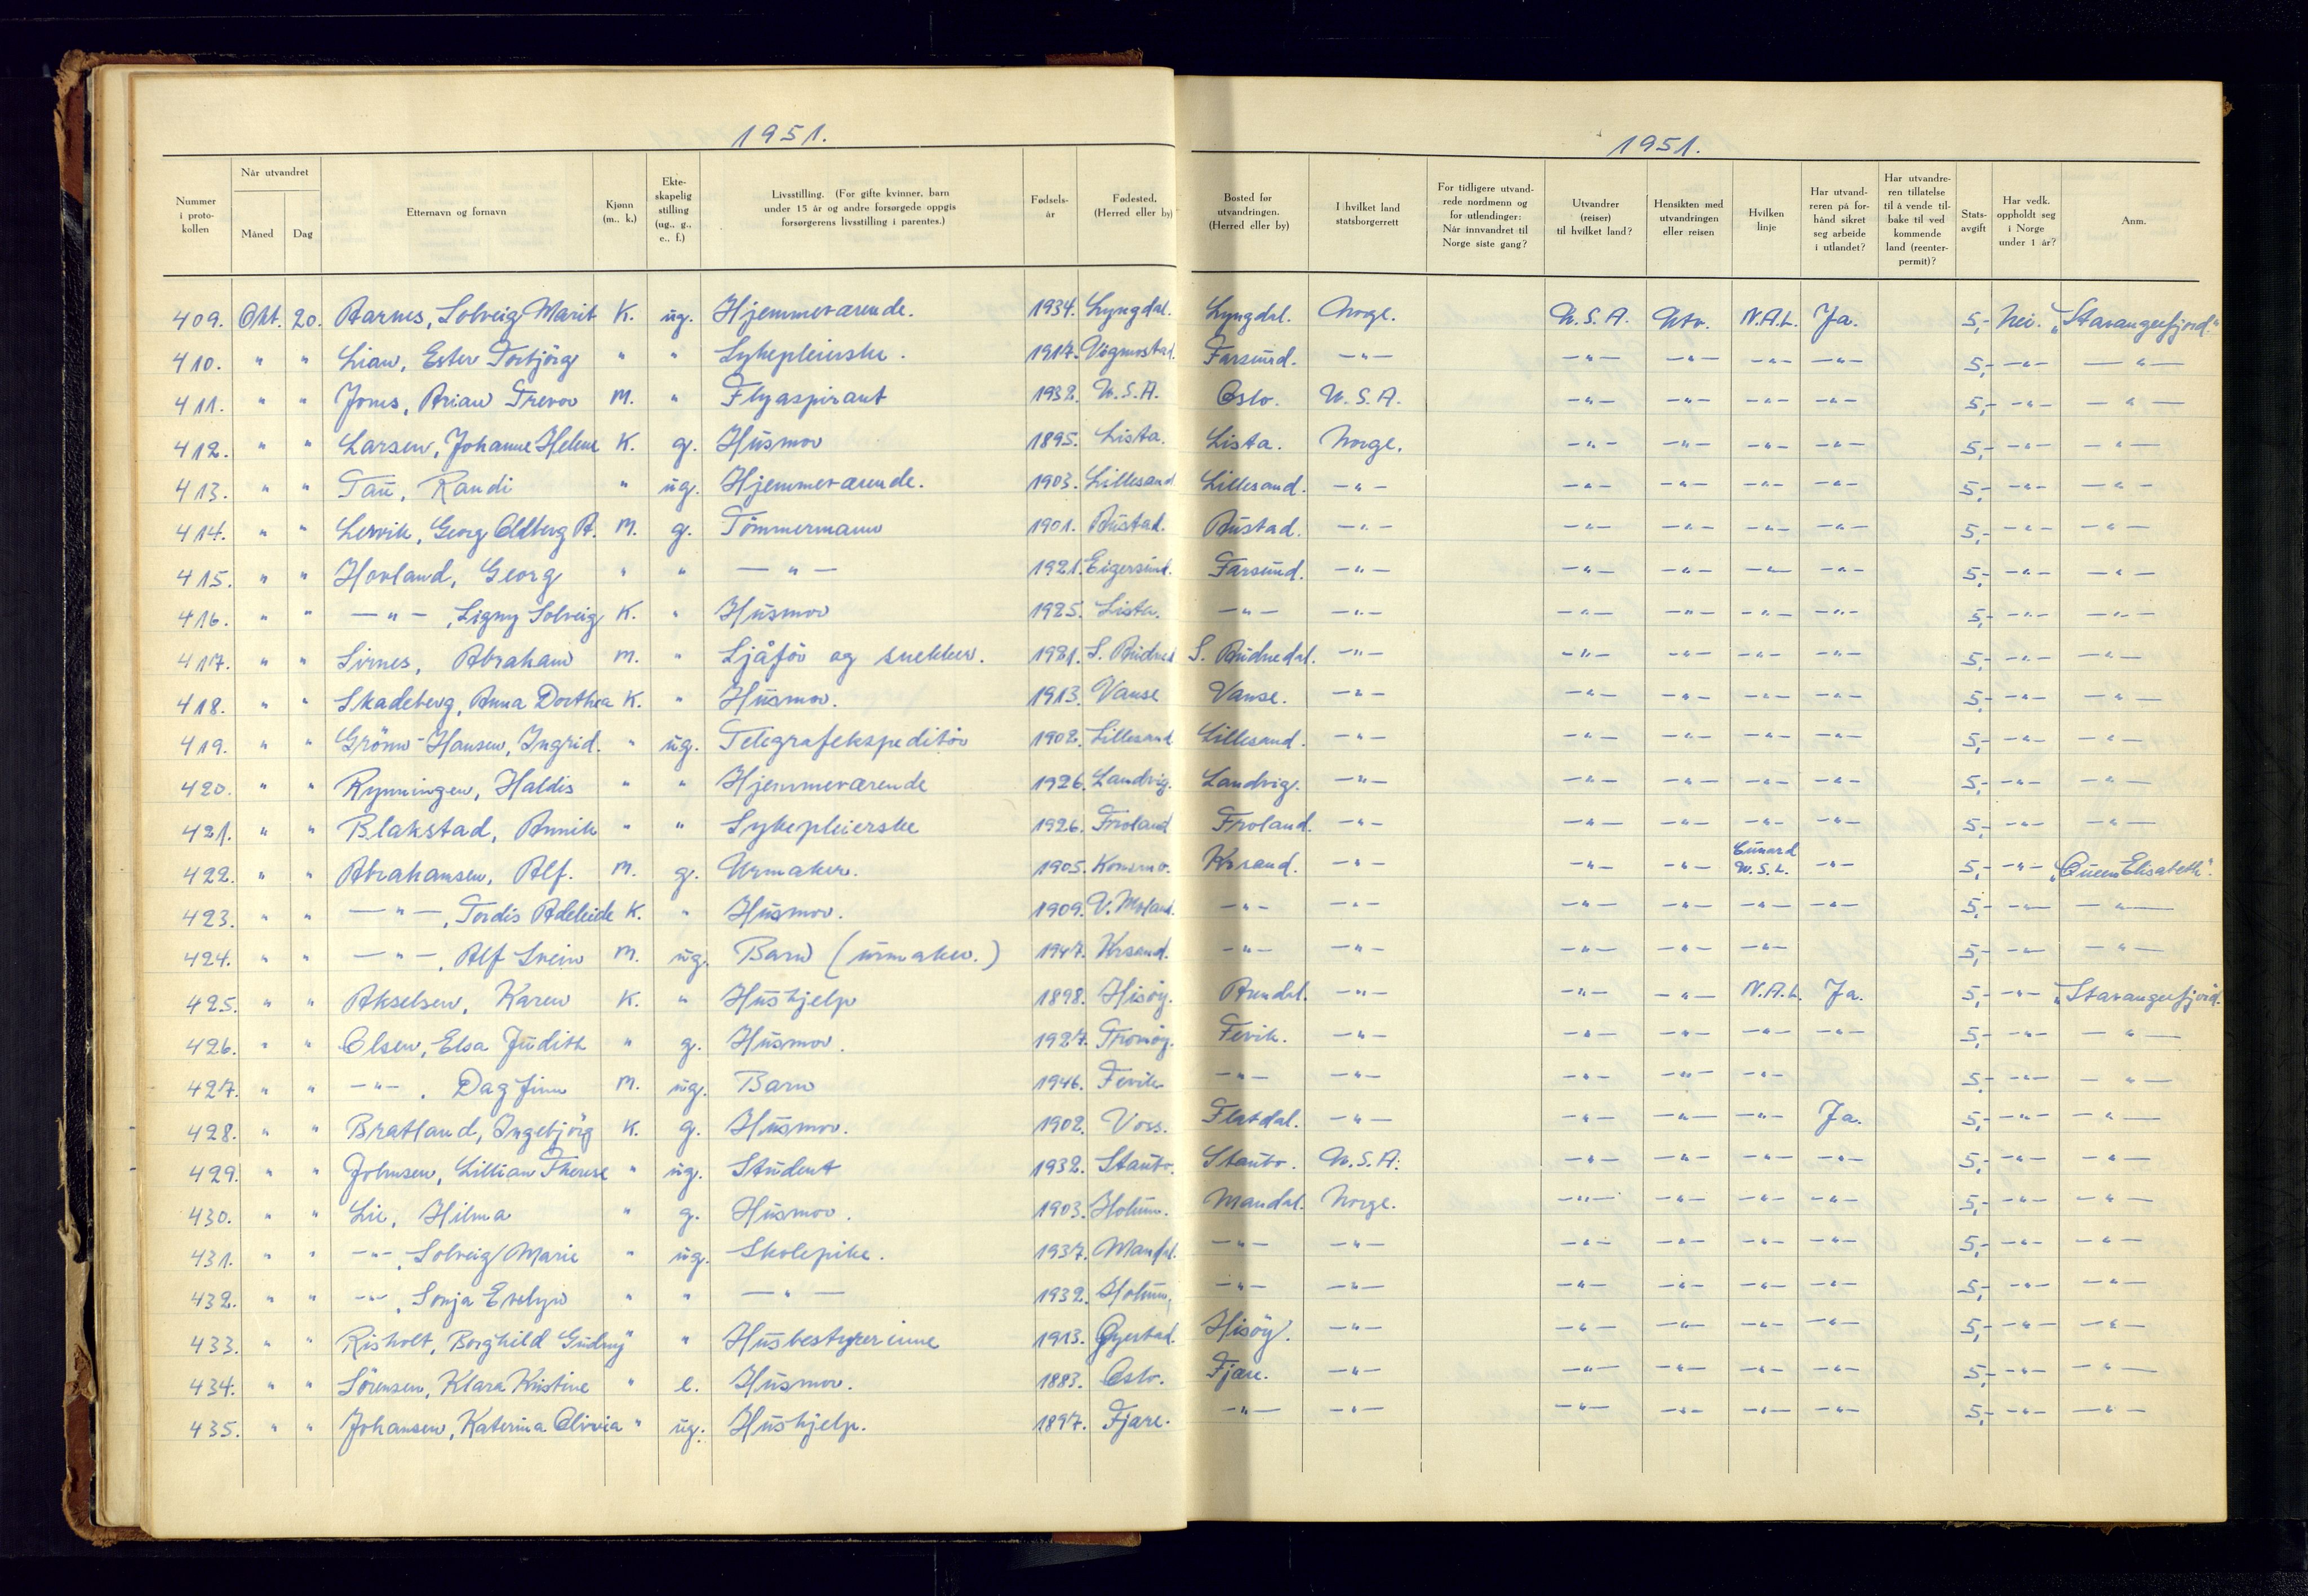 1951.
1951.
Nummer i proto-kollen | Når utvandret Måned | Dag | Etternavn og fornavn | Kjønn (m., k.) | Ekte-skapelig stilling (ug., g., e., f.) | Livsstilling. (For gifte kvinner, barn under 15 år og andre forsørgede oppgis forsørgerens livsstilling i parentes.) | Fødsels-år | Fødested. (Herred eller by) | Bosted før utvandringen. (Herred eller by) | I hvilket land statsborgerrett | For tidligere utvand-rede nordmenn og for utlendinger: Når innvandret til Norge siste gang? | Utvandrer (reiser) til hvilket land? | Hensikten med utvandringen eller reisen | Hvilken linje | Har utvand-reren på for-hånd sikret seg arbeide i utlandet? | Har utvandre-ren tillatelse til å vende til-bake til ved kommende land (reenter-permit)? | Stats-avgift | Har vedk. oppholdt seg i Norge under 1 år? | Anm.
409. Okt. 20. Aarnes, Solveig Marit K. ug. Hjemmeværende. 1934. Lyngdal. Lyngdal. Norge. U.S.A. Utv. N.A.L. Ja. 5,- Nei. "Stavangerfjord."
410. " " Lian, Ester Torbjörg " " Sykepleierske. 1917. Vigmostad. Farsund. -"- -"- -"- -"- -"- 5,- -"- -"-
411. " " Jones, Brian Trevor M. " Flyaspirant 1932. U.S.A. Oslo. U.S.A. -"- -"- -"- -"- 5,- -"- -"-
412. " " Larsen, Johanne Helene K. g. Husmor 1895. Lista. Lista. Norge. -"- -"- -"- -"- 5,- -"- -"-
413. " " Tau, Randi " ug. Hjemmeværende. 1903. Lillesand Lillesand. -"- -"- -"- -"- -"- 5,- -"- -"-
414. " " Lervik, Georg Oldberg A. M. g. Tömmermann 1901. Austad. Austad. -"- -"- -"- -"- -"- 5,- -"- -"-
415. " " Hovland, Georg " " -"- 1921. Eigersund. Farsund. -"- -"- -"- -"- -"- 5,- -"- -"-
416. " " -"-, Signy Solveig K. " Husmor 1925. Lista. -"- -"- -"- -"- -"- -"- 5,- -"- -"-
417. " " Sirnes, Abraham M. " Sjåför og snekker. 1921. S. Audned S. Audnedal. -"- -"- -"- -"- -"- 5,- -"- -"-
418. " " Skadeberg, Anna Dorthea K. " Husmor. 1913. Vanse Vanse. -"- -"- -"- -"- -"- 5,- -"- -"-
419. " " Grönn-Hansen, Ingrid. " ug. Telegrafekspeditör 1902. Lillesand Lillesand. -"- -"- -"- -"- -"- 5,- -"- -"-
420. " " Rynningen, Haldis " " Hjemmeværende 1926. Landvig. Landvig. -"- -"- -"- -"- -"- 5,- -"- -"-
421. " " Blakstad, Annik " " Sykepleierske 1926. Froland Froland. -"- -"- -"- -"- -"- 5,- -"- -"-
422. " " Abrahamsen, Alf. M. g. Urmaker. 1905. Konsmo. Krsand. -"- -"- -"- Cunard W.S.L. -"- 5,- -"- "Queen Elisabeth".
423. " " -"-, Tordis Adeleide K. " Husmor. 1909. V. Moland. -"- -"- -"- -"- -"- -"- 5,- -"- -"-
424. " " -"-, Alf Svein M. ug. Barn (urmaker.) 1947. Krsand. -"- -"- -"- -"- -"- 5,- -"- -"-
425. " " Akselsen, Karen K. " Hushjelp 1898. Hisöy. Arendal. -"- -"- -"- N.A.L. Ja. 5,- -"- "Stavangerfjord.
426. " " Olsen, Elsa Judith " g. Husmor. 1927. Tromöy. Fevik. -"- -"- -"- -"- -"- 5,- -"- -"-
427. " " -"-, Dag Finn M. ug. Barn 1946. Fevik -"- -"- -"- -"- -"- 5,- -"- -"-
428. " " Bratland, Ingebjörg K. g. Husmor. 1902. Voss. Flatdal. -"- -"- -"- -"- Ja. 5,- -"- -"-
429. " " Johnsen, Lillian Therese " ug. Student 1932. Staubo. Staubo. U.S.A. -"- -"- -"- -"- 5,- -"- -"-
430. " " Lie, Hilma " g. Husmor. 1903. Holum. Mandal. Norge. -"- -"- -"- -"- 5,- -"- -"-
431. " " -"-, Solveig Marie " ug. Skolepike. 1937. Mandal. -"- -"- -"- -"- -"- -"- 5,- -"- -"-
432. " " -"-, Sonja Evelyn " " -"- 1932. Holum. -"- -"- -"- -"- -"- -"- 5,- -"- -"-
433. " " Risholt, Borghild Gudny " " Husbestyrerinne 1913. Gjerstad. Hisöy. -"- -"- -"- -"- -"- 5,- -"- -"-
434. " " Sörensen, Klara Kristine " e. Husmor. 1883. Oslo. Fjære. -"- -"- -"- -"- -"- 5,- -"- -"-
435. " " Johansen, Katerina Olivia " ug. Hushjelp. 1897. Fjære. -"- -"- -"- -"- -"- -"- 5,- -"- -"-